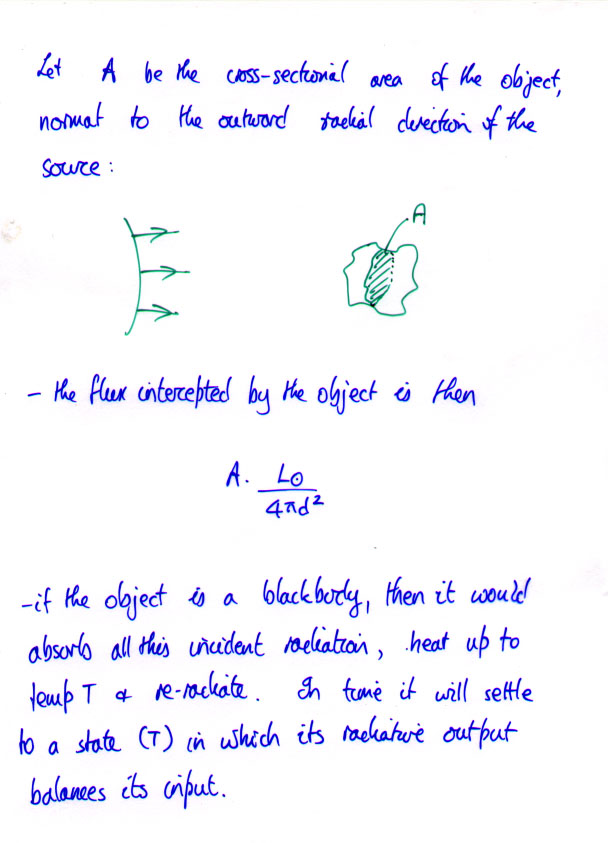 Let A be the cross-sectional area of the object,
normal to the outward radial direction of the
source :
A
- the flux intercepted by the object is then
A. L⊙
4πd²
- if the object is a blackbody, then it would
absorb all this incident radiation, heat up to
temp T & re-radiate. In time it will settle
to a state (T) in which its radiative output
balances its input.